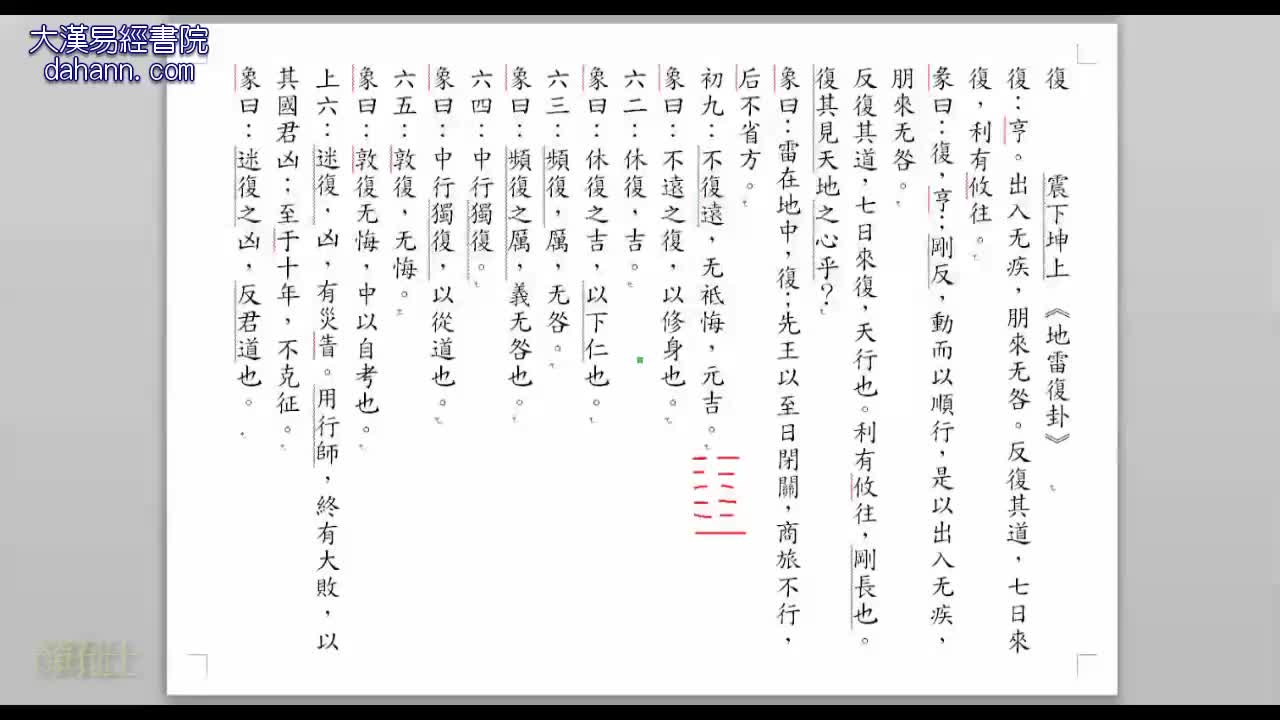 大漢易經書院
dahann. com
復　　　震下坤上　《地雷復卦》
復：亨。出入无疾，朋來无咎。反復其道，七日來
復，利有攸往。
彖曰：復，亨；剛反，動而以順行，是以出入无疾，
朋來无咎。
反復其道，七日來復，天行也。利有攸往，剛長也。
復其見天地之心乎？
象曰：雷在地中，復；先王以至日閉關，商旅不行，
后不省方。
初九：不復遠，无祗悔，元吉。
象曰：不遠之復，以修身也。
六二：休復，吉。
象曰：休復之吉，以下仁也。
六三：頻復，厲，无咎。
象曰：頻復之厲，義无咎也。
六四：中行獨復。
象曰：中行獨復，以從道也。
六五：敦復，无悔。
象曰：敦復无悔，中以自考也。
上六：迷復，凶，有災眚。用行師，終有大敗，以
其國君凶；至于十年，不克征。
象曰：迷復之凶，反君道也。